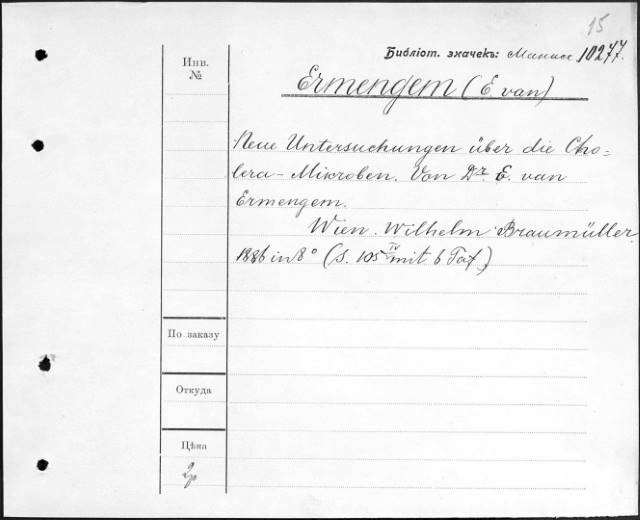 15
Библіот. значекъ: 10277.
Инв.
№
Ermengem (E. van)
Neue Untersuchungen über die Cho=
lera-Mikroben. Von Dr. E. van
Ermengem.
Wien. Wilhelm Braumüller.
1886 in 8° (S. 105 IV mit 6 Taf.)
По заказу
Откуда
Цѣна
2р